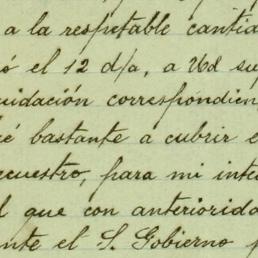 a la respetable cantida
ó el 12 d/a, a Ud su
uidación correspondien
cé bastante a cubrir e
ecuestro, para mi inte
l que con anteriorida
nte el S. Gobierno p